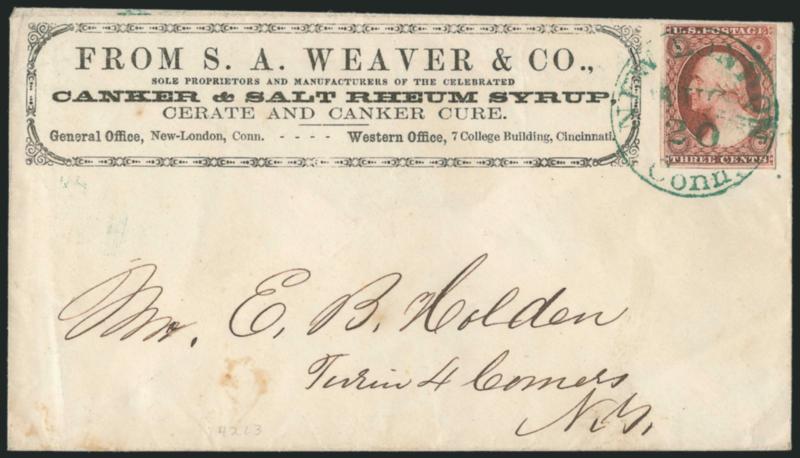 FROM S. A. WEAVER & CO.,
SOLE PROPRIETORS AND MANUFACTURERS OF THE CELEBRATED
CANKER & SALT RHEUM SYRUP,
CERATE AND CANKER CURE.
General Office, New-London, Conn. - - - - Western Office, 7 College Building, Cincinnati.
U.S. POSTAGE
THREE CENTS
NEW LONDON
AUG
20
Conn.
Mr. E. B. Holden
Turin 4 Corners
N.Y.
4213